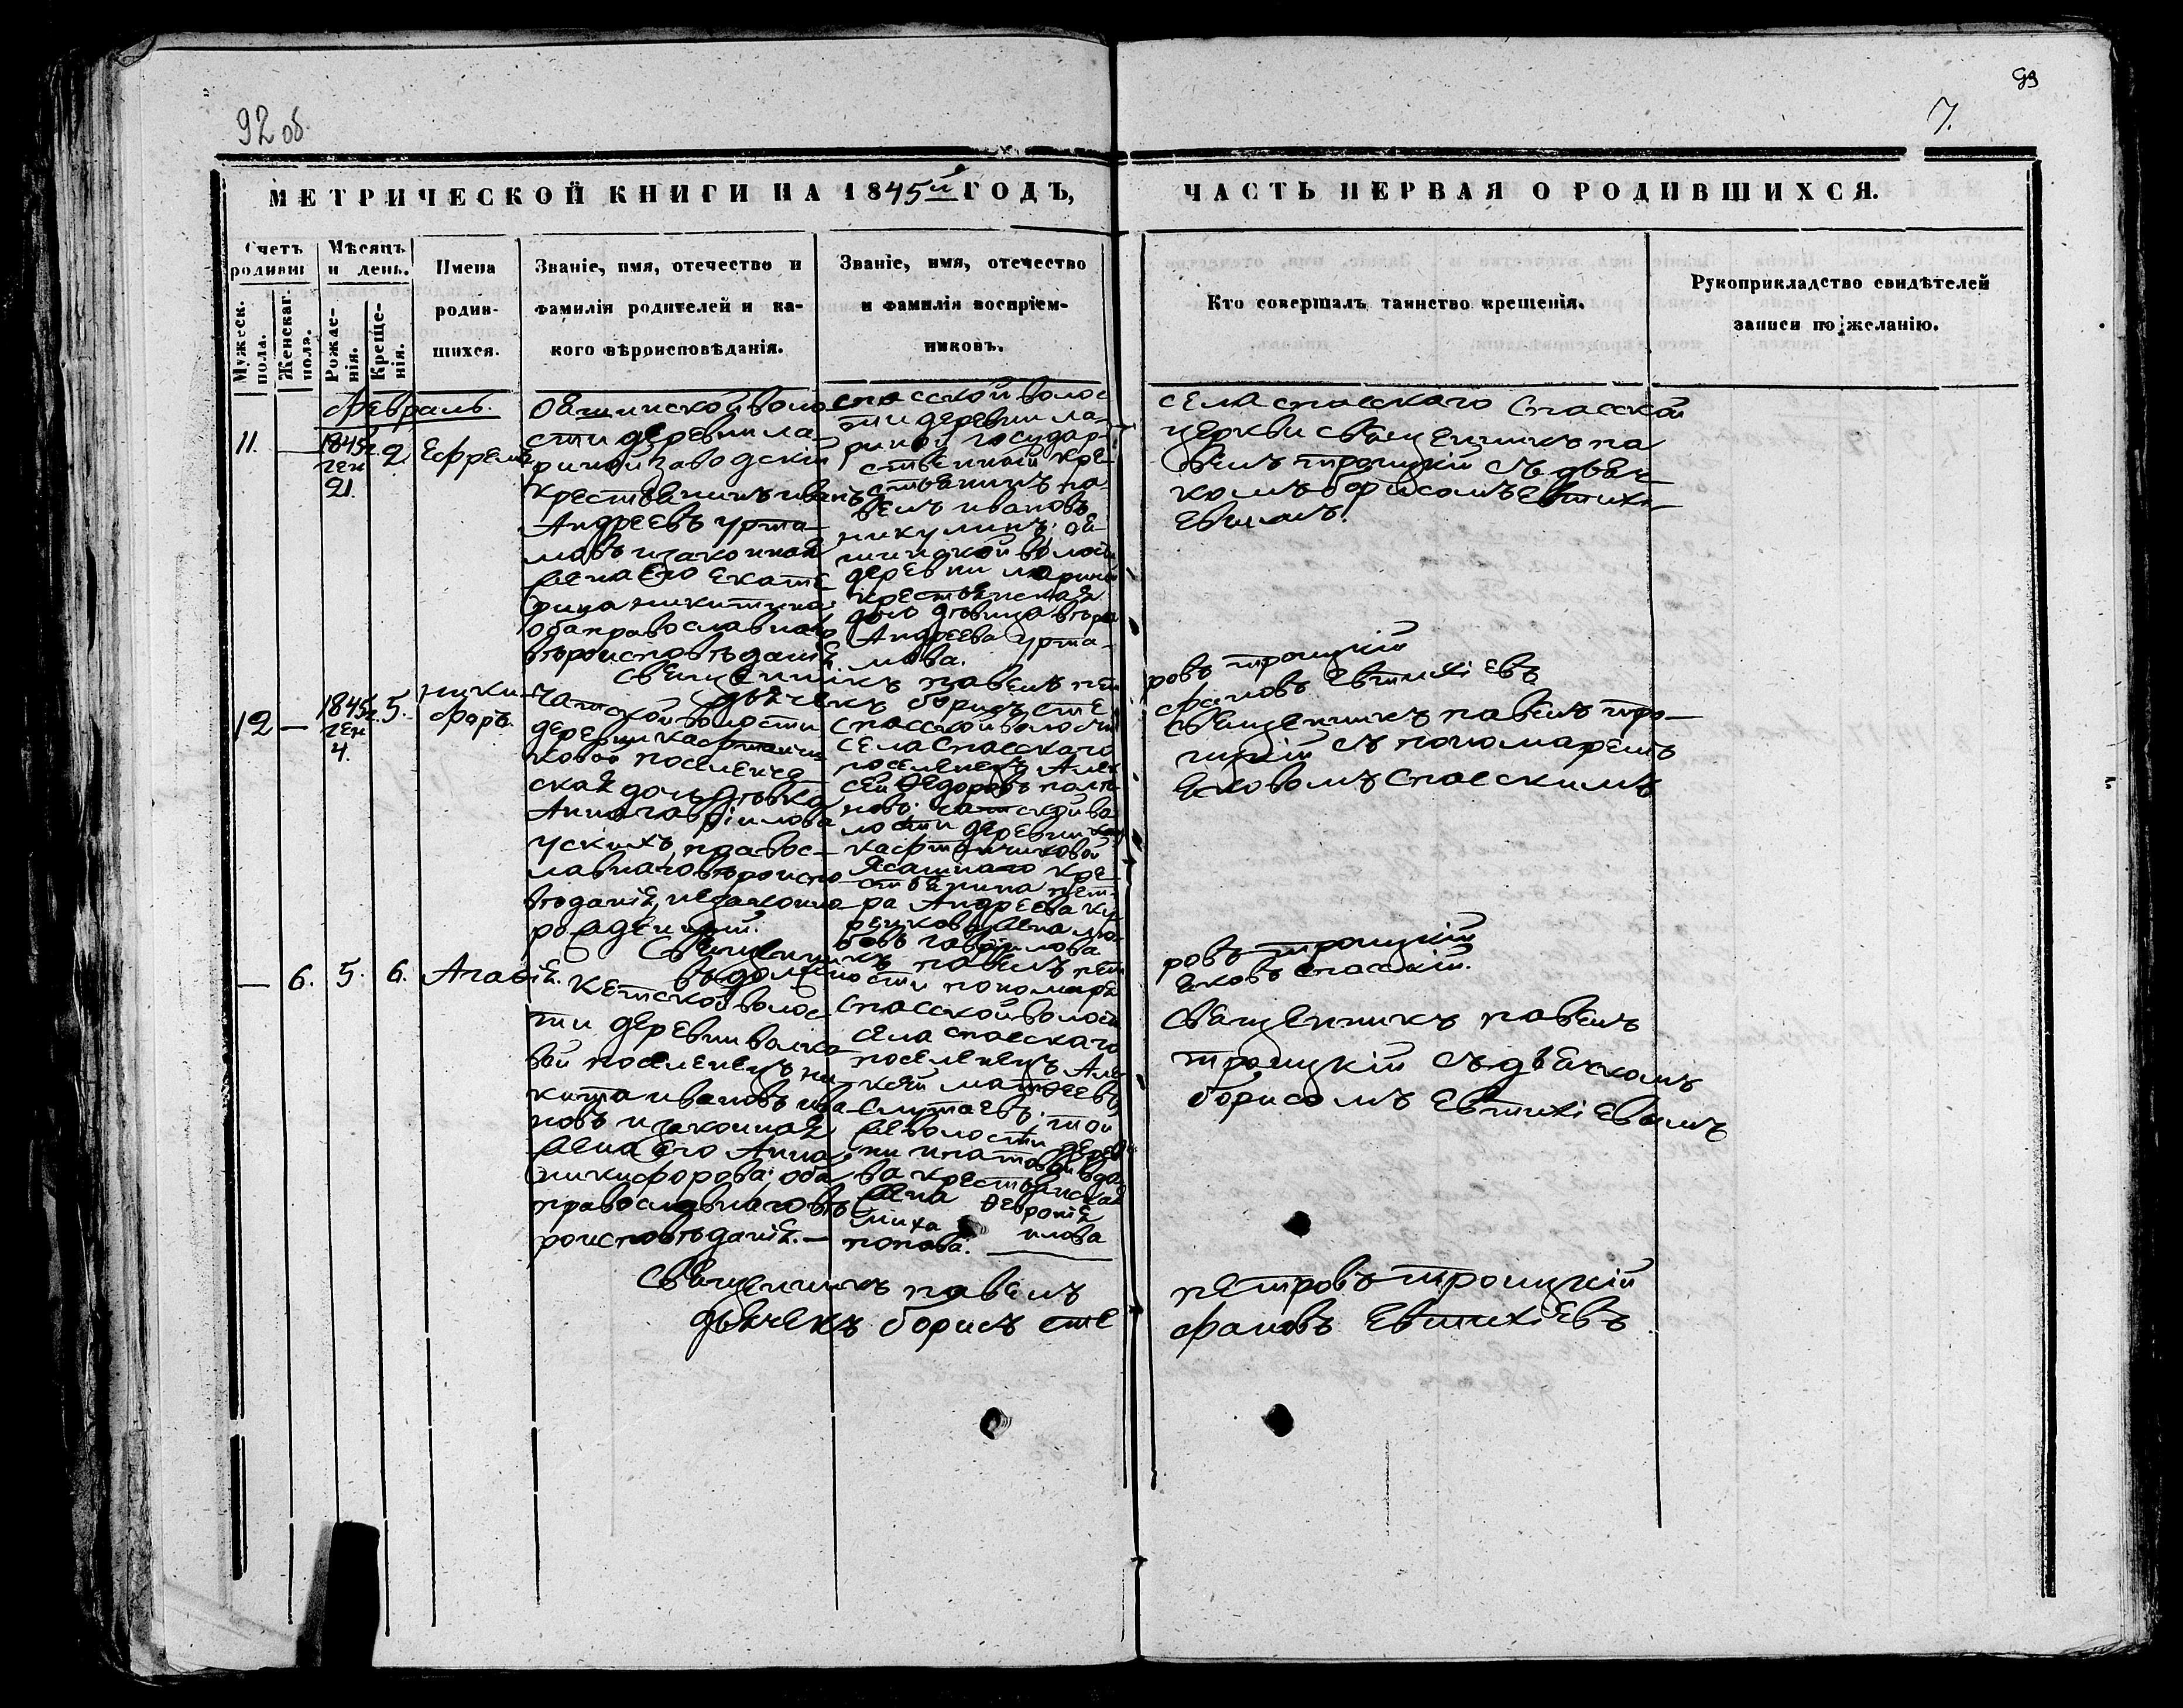 92 об.
93
7.
МЕТРИЧЕСКОЙ КНИГИ НА 1845й ГОДЪ,
ЧАСТЬ ПЕРВАЯ О РОДИВШИХСЯ.
Счетъ родивш
Мужеск. пола.
Женскаг. пола.
Мѣсяцъ и день.
Рожденія.
Крещенія.
Имена
родив-
шихся.
Званіе, имя, отечество и
фамилія родителей и ка-
кого вѣроисповѣданія.
Званіе, имя, отечество
и фамилія воспріем-
никовъ.
Кто совершалъ таинство крещенія.
Рукоприкладство свидѣтелей
записи по желанію.
февраль.
11. —
1845г.
ген
21.
2.
Ефремъ
воло
сти деревни ла-
риной заводскій
крестьянинъ иванъ
Андреевъ урта-
мовъ и законная
жена его екате
рина никитина
оба православнаго
вѣроисповѣданія.
спасской волос
ти деревни ла-
риной государ-
ственной кре
стьянинъ па-
велъ ивановъ
никулинъ;
волости
деревни лариной
крестьянская
дочь дѣвица вѣра
Андреева урта-
мова.
села спасскаго Спасской
церкви священникъ па
велъ троицкій съ дьяч
комъ борисомъ евтихі
евымъ.
священникъ павелъ пет
ровъ троицкій
дьячекъ борисъ сте
фановъ Евтихіевъ
12 —
1845г.
ген
4.
5.
ники-
форъ.
волости
деревни кафтанчи
ковой поселенче
ская дочь дѣвка
Анна гавріилова
ускихъ, правос-
лавнаго вѣроиспо
вѣданія, незаконно
рожденный.
спасской волости
села спасскаго
поселенецъ Алек
сей Ѳедоровъ
волости деревни
кафтанчиковой
Ясашнаго кре-
стьянина пет-
ра Андреева
жена лю-
бовь гаврилова
священникъ павелъ тро-
ицкій съ пономаремъ
яковомъ спасскимъ
Священникъ павелъ пет
ровъ троицкій
въ должности пономаря
яковъ спасскій.
— 6. 5. 6. Агавія.
Кетской волос-
ти деревни волко
вой поселенецъ ни
кита ивановъ ива-
новъ и законная
жена его Анна
никифорова; оба
православнаго вѣ
роисповѣданія. —
спасской волости
села спасскаго
поселенецъ Але
ксѣй матѳеевъ
той
же волости дерев
ни игнатовой вдо
ва крестьянская
жена Ѳевронія
миха илова
попова.
священникъ павелъ
троицкій съ дьячкомъ
борисомъ Евтихіевымъ
священникъ павелъ
петровъ троицкій
дьячекъ борисъ сте
фановъ Евтихіевъ